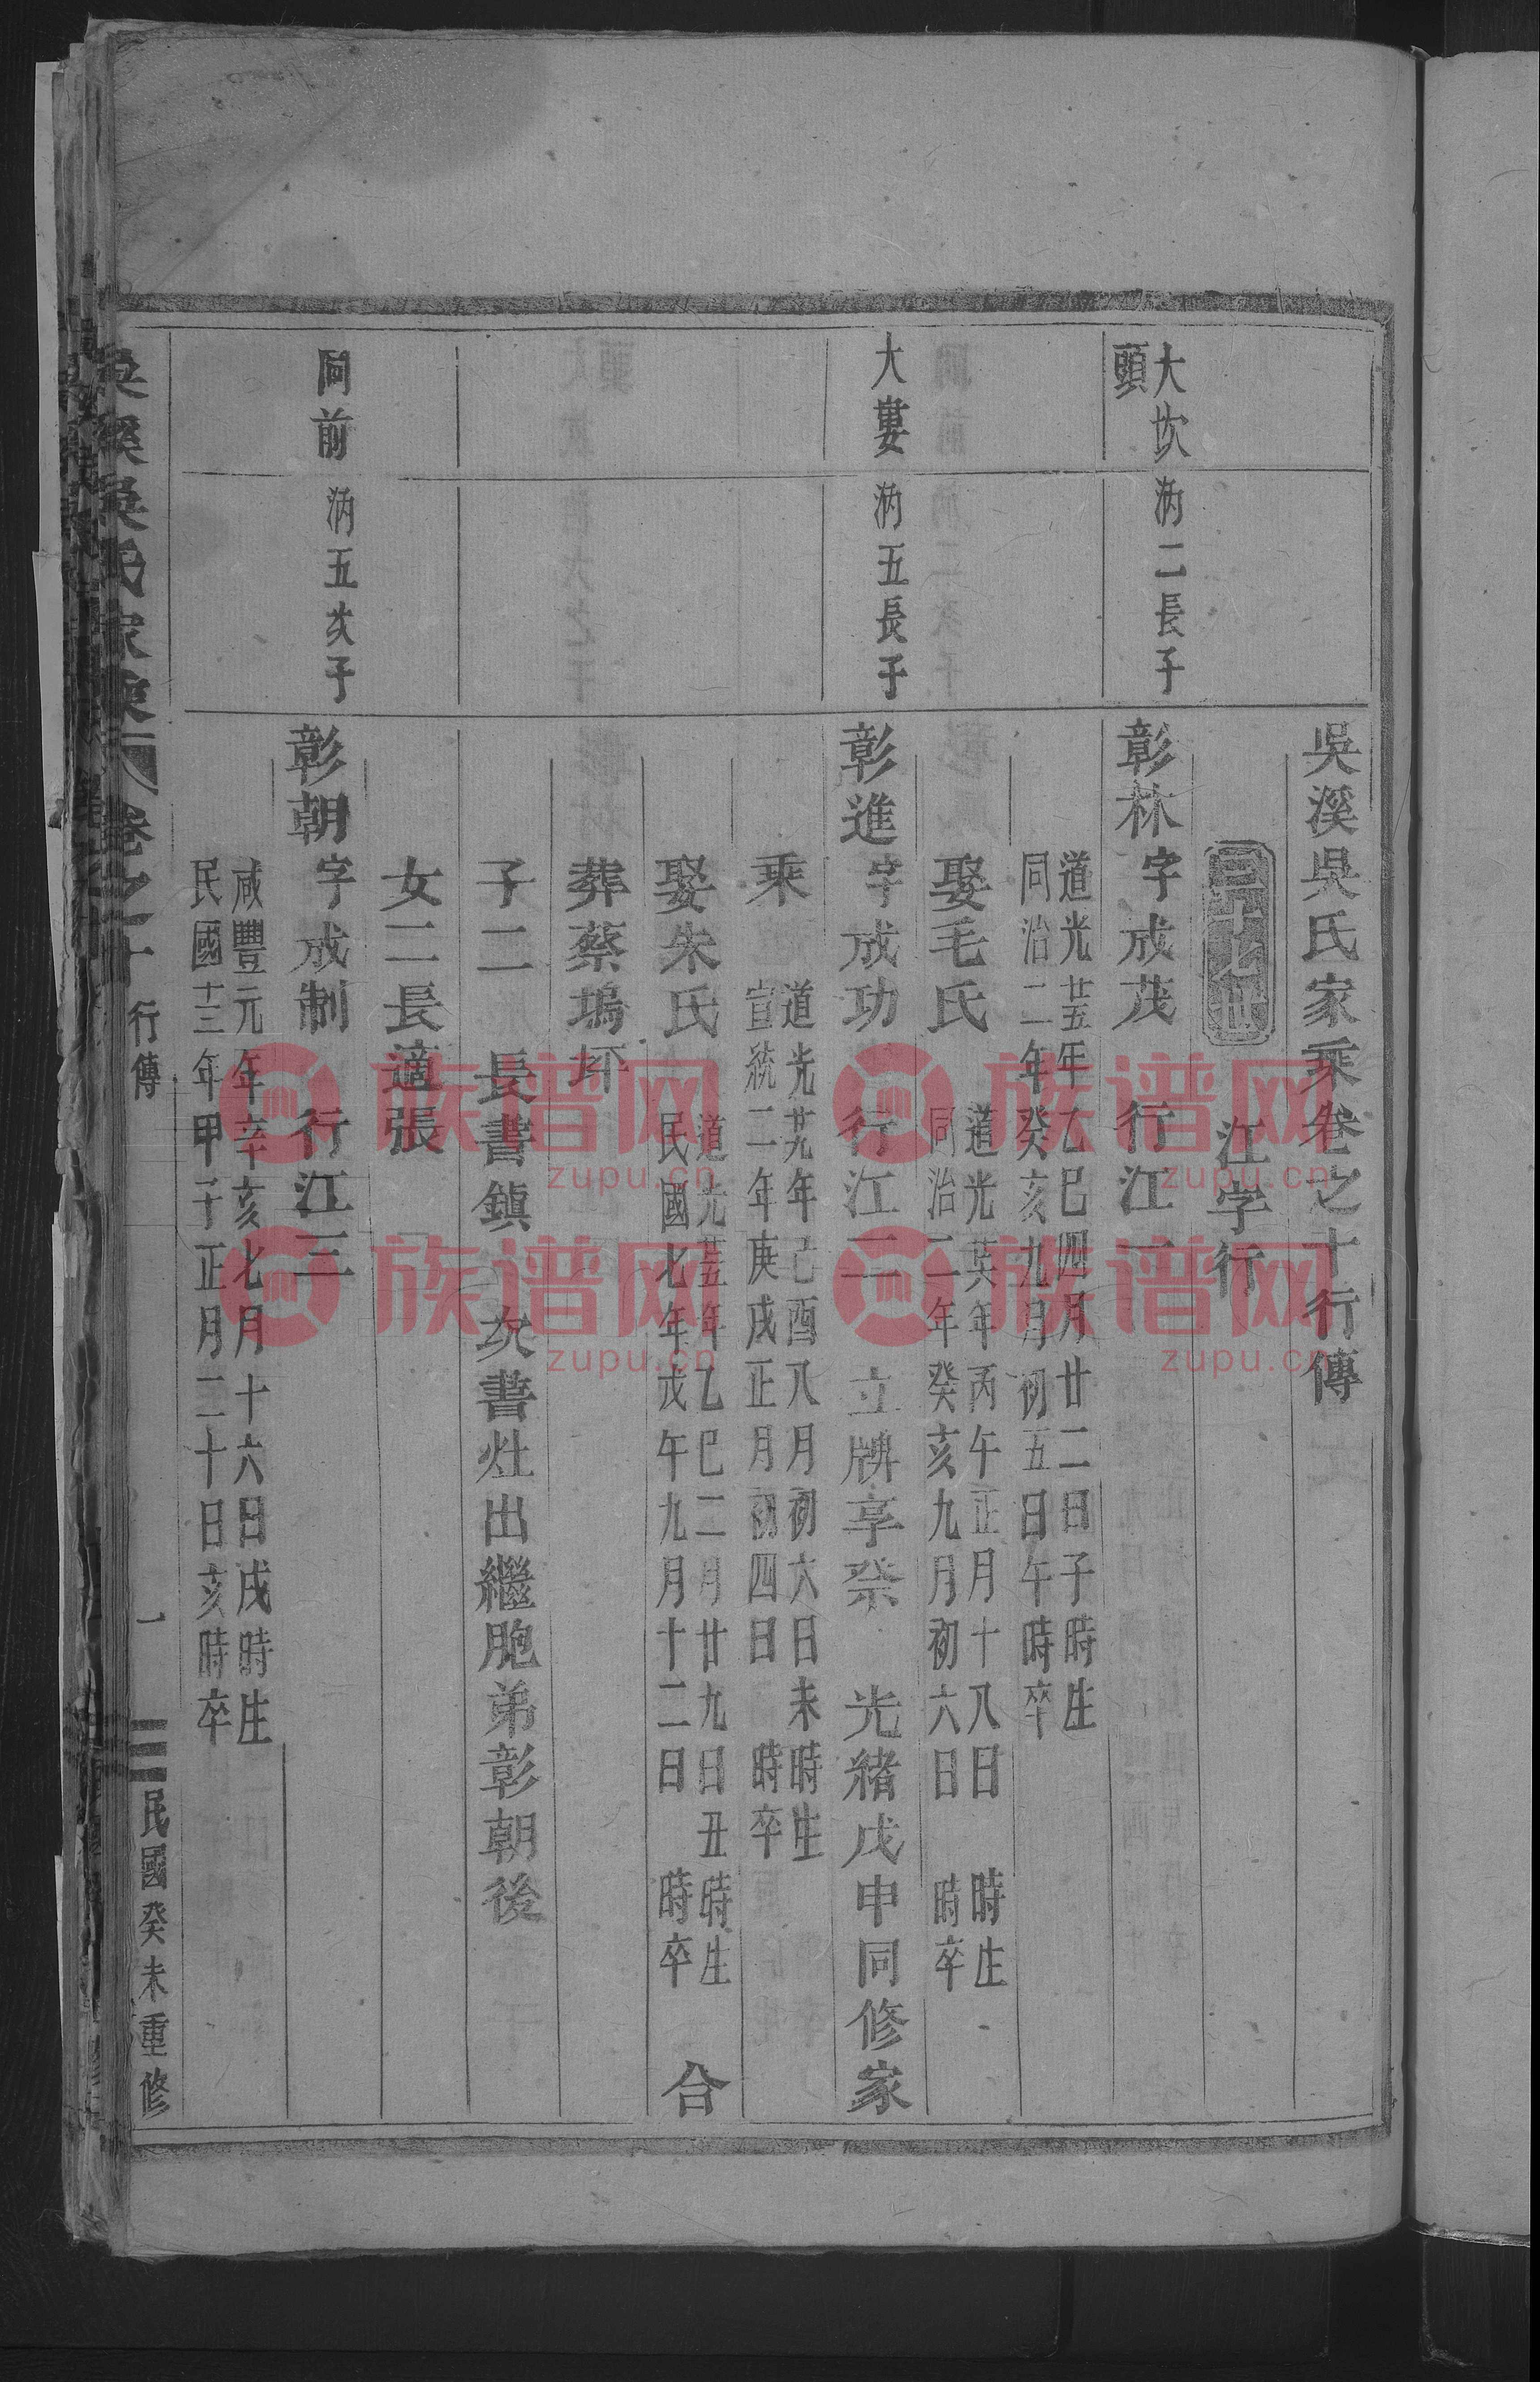 吳溪吳氏家乘卷之十行傳
三十七世
江字行
大坎
頭
洀二長子
彰林字成茂 行江一
道光廿五年乙巳四月廿二日子時生
同治二年癸亥九月初五日午時卒
娶毛氏
道光廿六年丙午正月十八日 時生
同治二年癸亥九月初六日 時卒
大婁
洀五長子
彰進字成功 行江二 立牌享祭 光緒戊申同修家
乘
道光廿九年己酉八月初六日未時生
宣統二年庚戌正月初四日 時卒
娶朱氏
道光廿五年乙巳二月廿九日丑時生
民國七年戊午九月十二日 時卒
合
葬蔡塢坏
子二 長書鎮 次書灶出繼胞弟彰朝後
女二長適張
同前
洀五次子
彰朝字成制 行江三
咸豐元年辛亥七月十六日戌時生
民國十三年甲子正月二十日亥時卒
吳溪吳氏家乘 卷之十 行傳 一 民國癸未重修
族谱网
zupu.cn
族谱网
zupu.cn
族谱网
zupu.cn
族谱网
zupu.cn